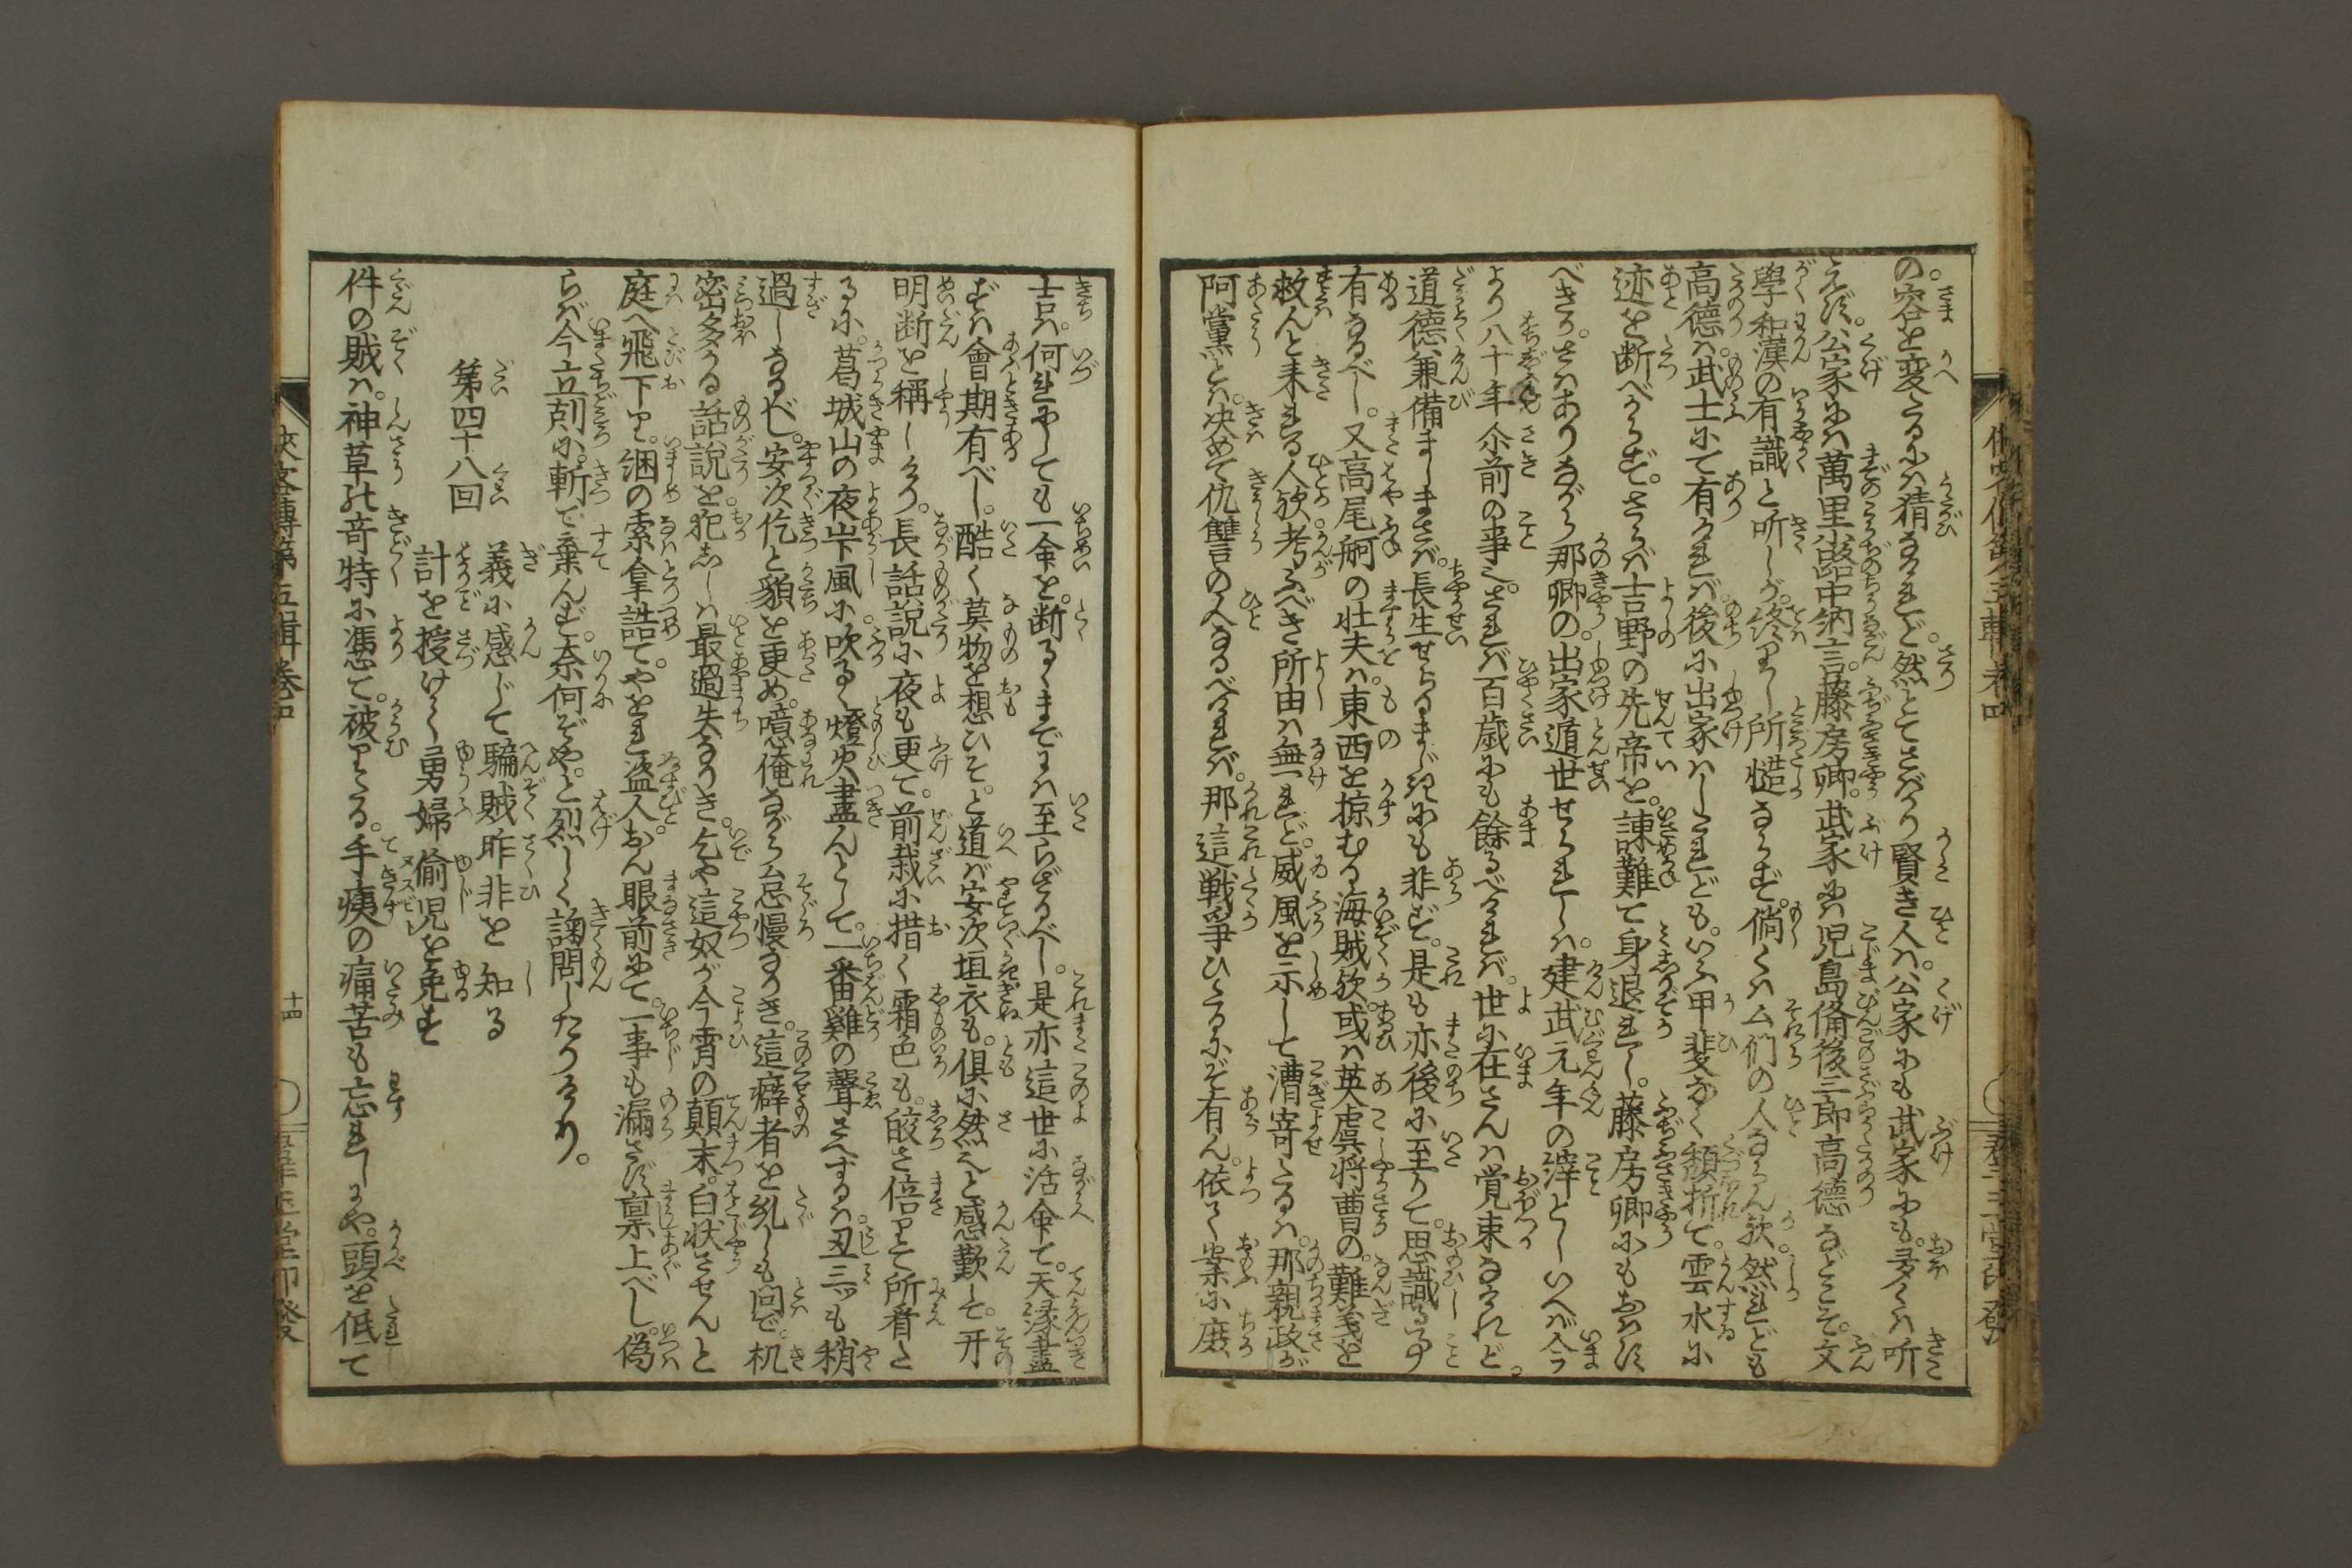 の。容を変たるは猜なれど。然とてさばかり賢き人は。公家にも武家にも。多くは听
えず。公家には萬里小路中納言藤房卿。武家には児島備後三郎高徳などこそ。文
學和漢の有識と听しが。終りし所慥ならず。倘くは厶們の人ならん欤。然れども
高徳は。武士にて有ければ。後に出家はしたれども。いふ甲斐なく頽折て。雲水に
迹を断べからず。さらば吉野の先帝を。諌難て身退れし。藤房卿にもおはす
べきか。さはありながら那卿の。出家遁世せられしは。建武元年の滓としいへば今ゟ
より八十年尒前の事也。されば百歳にも餘るべければ。世に在さんは覚束なけれど。
道徳兼備ましまさば。長生せらるまじきにも非ず。是も亦後に至りて。思識る事
有なるべし。又高尾舸の壮夫は。東西を掠むる海賊欤。或は英虞将曹の。難義を
救んと来れる人欤考ふべき所由は無れど。威風を示して漕寄たるは。那親政が
阿黨とは。决めて仇讐の人なるべければ。那這戦爭ひたるにぞ有ん。依て案に麼
吉は。何れにしても一命を。断るゝまでには至らざるべし。是亦這世に活命て。天縁盡
ずは會期有べし。酷く莫物を想ひそ。と道ば安次垣衣も。倶に然也と感歎して。开
明断を稱しけり。長話説に夜も更て。前栽に措く霜色も。皎さ倍りて所看た
るに。葛城山の夜半風に。吹るゝ燈火盡んとして。一番雞の聲さへするは。丑三ッも稍
過しなるべし。安次仡と貌を更め。噫俺ながら忌慢なりき。這癖者を糺しも问で。机
密多かる話説を。犯しゝは最過失なりき。乞や這奴が今宵の顛末。白状させんと
庭へ飛下り。綑の索拿詰て。やをれ盗人。おん眼前にて。一事も漏さず禀上べし。偽
らば今立刻に。斬て棄んず。奈何ぞや。と烈しく鞠問したりけり。
第四十八回
義に感じて騙賊昨非を知る
計を授けて勇婦偷児を免す
件の賊は。神草の奇特に憑て。被りたる。手痍の痛苦も忘れしにや。頭を低て
侠客傳第五輯卷四
十四
群玉堂印發